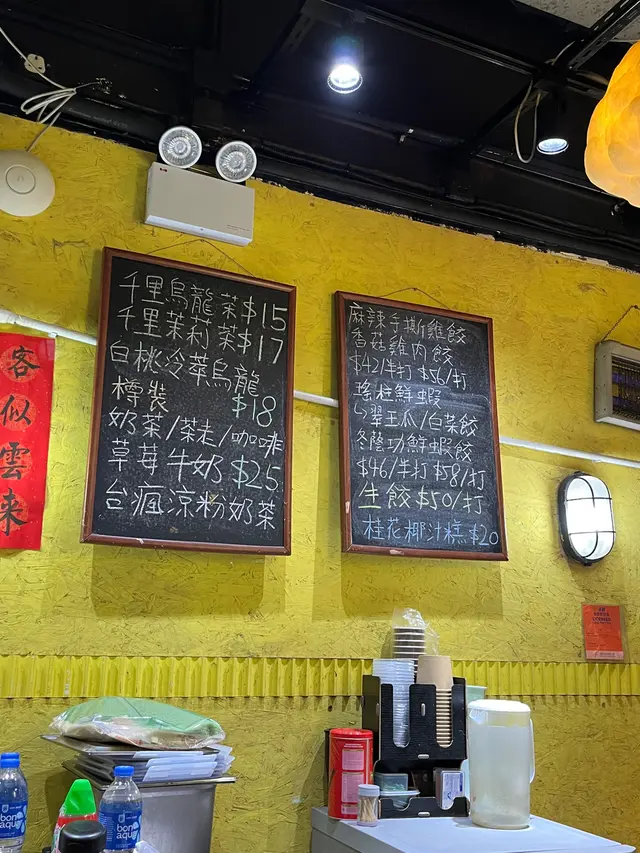 客似雲來
千里烏龍茶$15
千里茉莉茶$17
白桃冷萃烏龍
樽裝 $18
奶茶/茶走/咖啡
草莓牛奶$25
台瘋涼粉奶茶
麻辣手撕雞餃
香菇雞肉餃
$42/半打 $56/打
瑤柱鮮蝦
↳翠王瓜/白菜餃
冬蔭功鮮蝦餃
$46/半打 $58/打
生餃$50/打
桂花椰汁糕$20
bon aqua
bon aqua